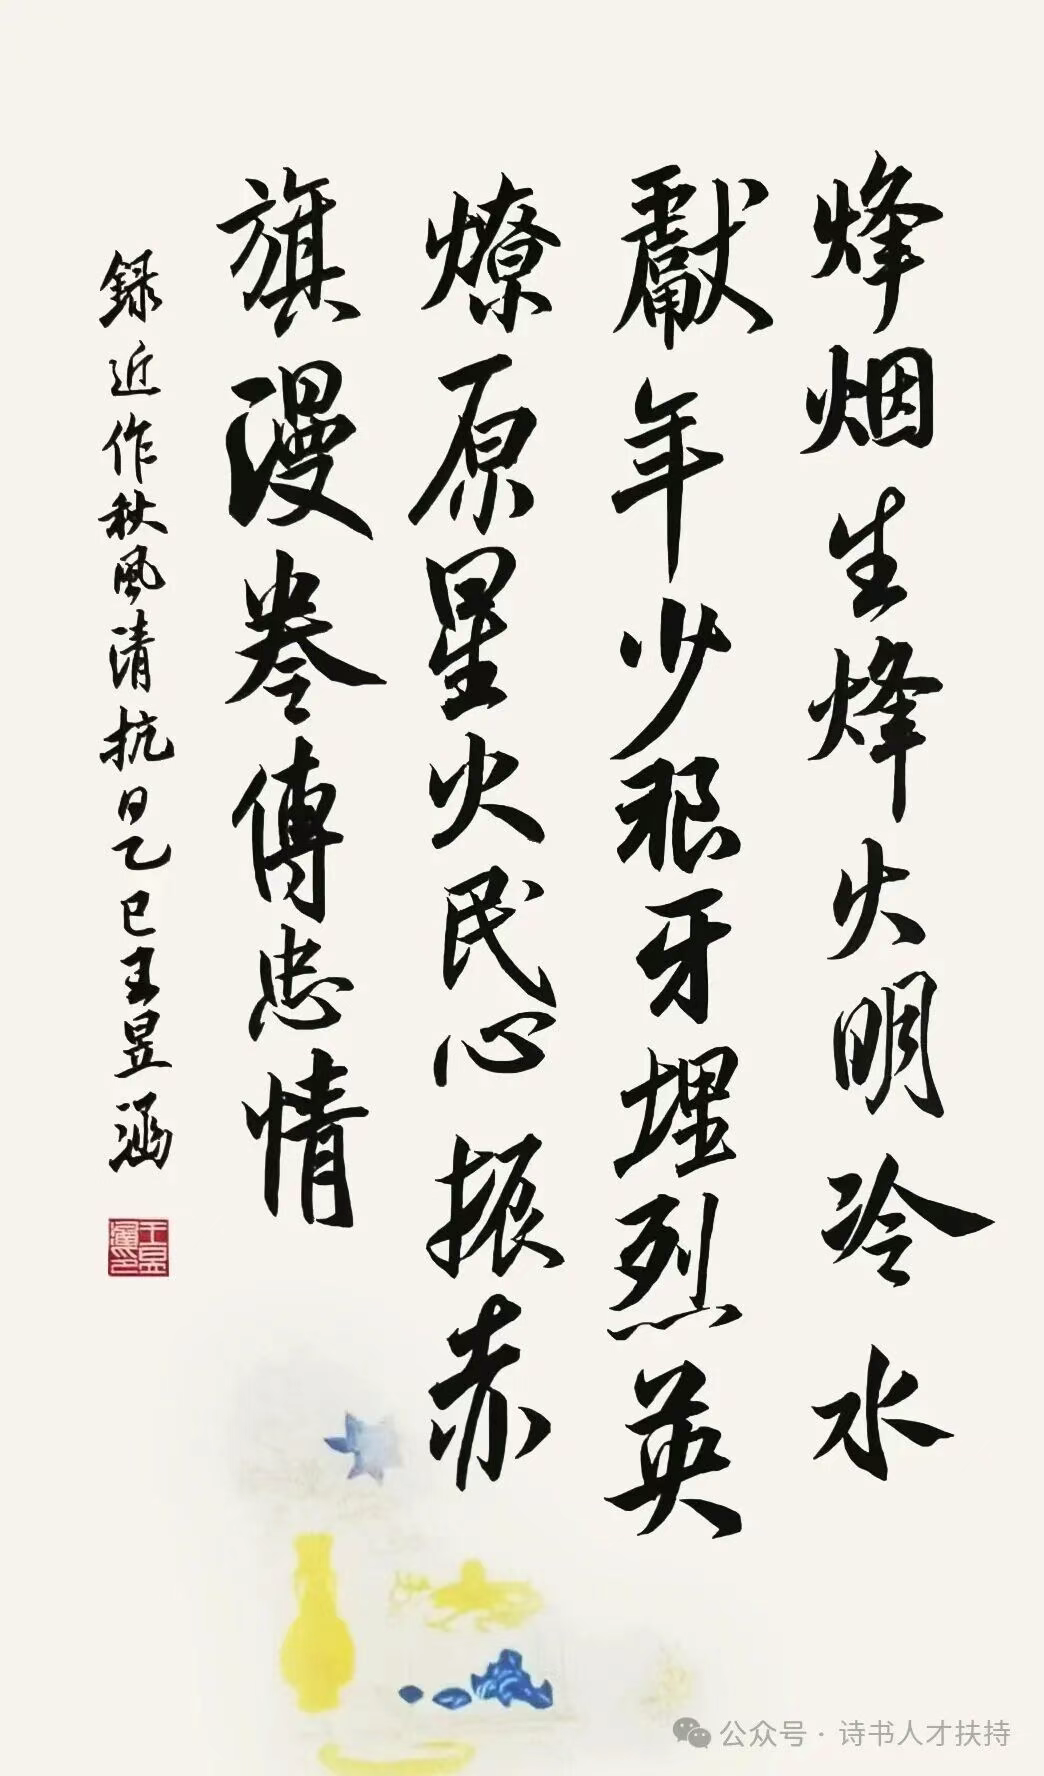 烽烟生烽火明冷水
獻年少狠牙埋烈英
燎原星火民心振赤
旗漫卷傳忠情
録近作秋風清抗日乙巳王昱涵
王昱涵印
公众号·诗书人才扶持